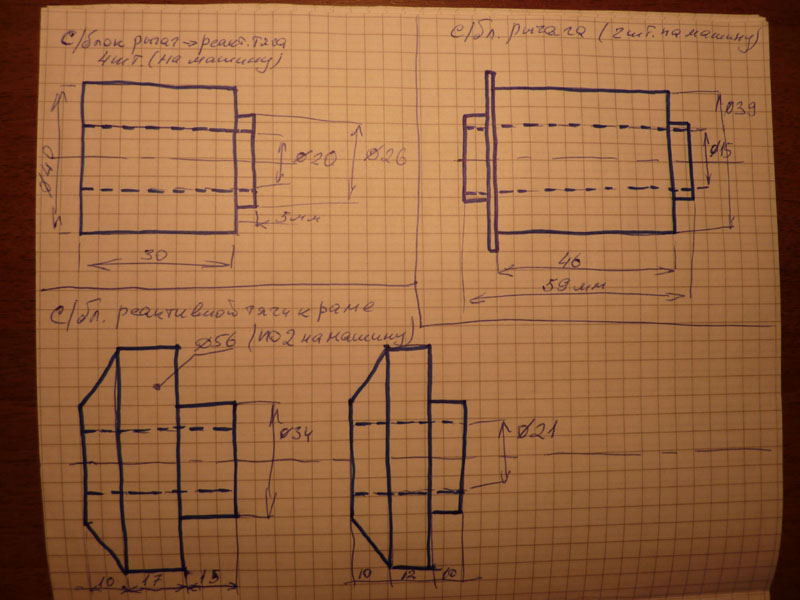 С/блок рычаг→реакт. тяга
4шт. (на машину)
ø40
ø20
ø26
5мм
30
С/бл. рычага (2шт. на машину)
ø39
ø15
46
59 мм
С/бл. реактивной тяги к раме
ø56 (по 2 на машину)
ø34
ø21
10 17 15
10 12 10